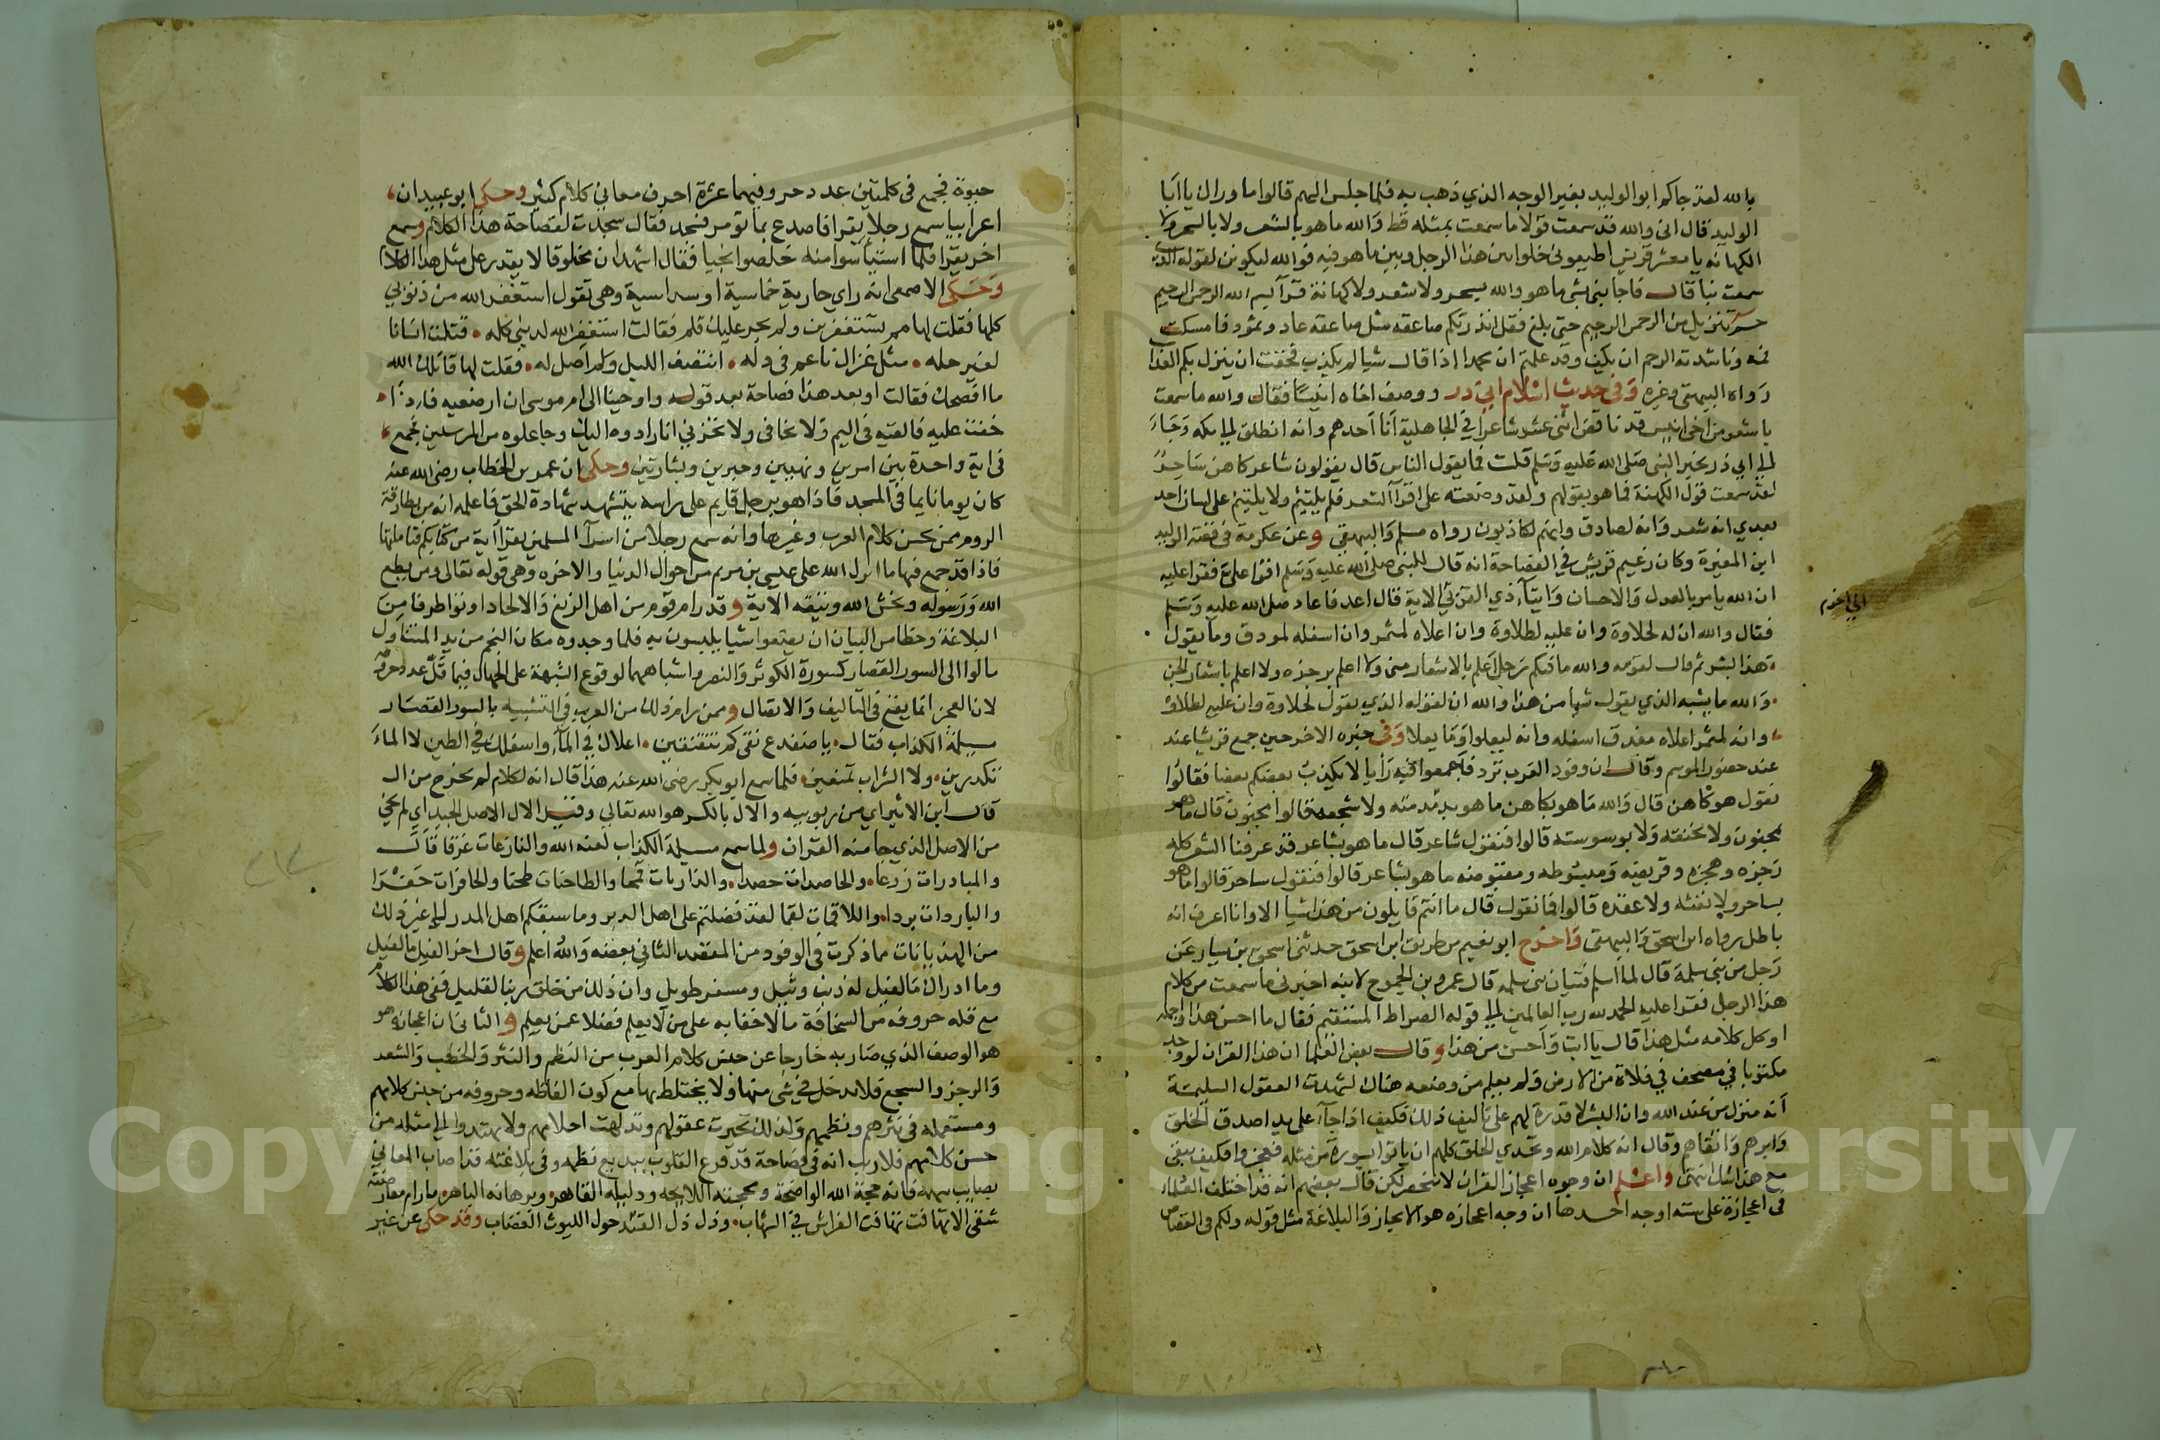 بالله لقد جاكم ابو الوليد بغير الوجه الذي ذهب به فلما جلس اليهم قالوا ما وراك يا ابا
الوليد قال اني والله قد سمعت قولا ما سمعت بمثله قط والله ما هو بالشعر ولا بالسحر ولا
الكهانة يا معشر قريش اطيعوني خلوا بين هذا الرجل وبين ما هو فيه فوالله ليكونن لقوله الذي
سمعت نبا قال فاجابني بشي ما هو والله بسحر ولا شعر ولا كهانة قرآ بسم الله الرحمن الرحيم
حم تنزيل من الرحمن الرحيم حتى بلغ فقل انذرتكم صاعقة مثل صاعقة عاد وثمود فامسكت
فمه وناشدته الرحم ان يكف وقد علمتم ان محمدا اذا قال شيا لم يكذب فخفت ان ينزل بكم العذاب
رواه البيهقي وغيره وفي حديث اسلام ابي ذر ووصف اخاه انيسا فقال والله ما سمعت
باشعر من اخي انيس قد ناقض اثني عشر شاعرا في الجاهلية انا احدهم وانه انطلق الى مكه وجاء
الى ابي ذر بخبر النبي صلى الله عليه وسلم قلت فما يقول الناس قال يقولون شاعر كاهن ساحر
لقد سمعت قول الكهنة فما هو بقولهم ولقد وضعته على اقرآ الشعر فلم يلتيم ولا يلتيم على لسان احد
بعدي انه شعر وانه لصادق وانهم لكاذبون رواه مسلم والبيهقي وعن عكرمة في قصة الوليد
ابن المغيرة وكان زعيم قريش في الفصاحة انه قال للنبي صلى الله عليه وسلم اقرا علي فقرا عليه
ان الله يامر بالعدل والاحسان وايتآء ذي القربي الاية قال اعد فاعاد صلى الله عليه وسلم
فقال والله ان له لحلاوة وان عليه لطلاوة وان اعلاه لمثمر وان اسفله لمغدق وما يقول
هذا بشر ثم قال لقومه والله ما فيكم رجل اعلم بالاشعار مني ولا اعلم برجزه ولا اعلم باشعار الجن
والله ما يشبه الذي يقول شيا من هذا والله ان لقوله الذي يقول لحلاوة وان عليه لطلاوة
وانه لمثمر اعلاه مغدق اسفله وانه ليعلوا وما يعلا وفي خبره الاخر حين جمع قريشا عند
عند حضور الموسم وقال ان وفود العرب ترد فاجمعوا فيه رأيا لا يكذب بعضكم بعضا فقالوا
نقول هو كاهن قال والله ما هو بكاهن ما هو بزمزمته ولا سجعه قالوا مجنون قال ما هو
بمجنون ولا بخنقه ولا بوسوسته قالوا فنقول شاعر قال ما هو بشاعر قد عرفنا الشعر كله
رجزه وهجزه وقريضه ومبسوطه ومقبوضه ما هو بشاعر قالوا فنقول ساحر قالوا ما هو
بساحر ولا نفثه ولا عقده قالوا فما نقول قال ما انتم قايلون من هذا شيا الا وانا اعرف انه
باطل رواه ابن اسحق والبيهقي واخرج ابو نعيم من طريق ابن اسحق حدثني اسحق بن سيار عن
رجل من بني سلمة قال لما اسلم فتيان بني سلمه قال عمرو بن الجموح لابنه اخبرني ما سمعت من كلام
هذا الرجل فقرا عليه الحمد لله رب العالمين الى قوله الصراط المستقيم فقال ما احسن هذا واجمله
او كل كلامه مثل هذا قال يا ابت واحسن من هذا وقال بعض العلما ان هذا القران لو وجد
مكتوبا في مصحف في فلاة من الارض ولم يعلم من وضعه هناك لشهدت العقول السليمة
انه منزل من عند الله وان البشر لا قدرة لهم على تاليف ذلك فكيف اذا جآء على يد اصدق الخلق
وابرهم واتقاهم وقال انه كلام الله وتحدي الخلق كلهم ان ياتوا بسورة من مثله فعجزوا فكيف يبقى
مع هذا شك انتهى واعلم ان وجوه اعجاز القران لا تنحصر لكن قال بعضهم انه قد اختلف العلماء
في اعجازه على سته اوجه احدها ان وجه اعجازه هو الايجاز والبلاغة مثل قوله ولكم في القصاص
حيوة فجمع في كلمتين عدد حروفهما عشرة احرف معاني كلام كثير وحكى ابو عبيد ان
اعرابيا سمع رجلا يقرا فاصدع بما تومر فسجد فقال سجدت لفصاحة هذا الكلام وسمع
اخر يقرا فلما استياسوا منه خلصوا نجيا فقال اشهد ان مخلوقا لا يقدر على مثل هذا الكلام
وحكى الاصمعي انه راي جارية خماسية او سداسية وهي تقول استغفر الله من ذنوبي
كلها فقلت لها مم تستغفرين ولم يجر عليك قلم فقالت استغفر الله لذنبي كله • قتلت انسانا
لغير حله • مثل غزال ناعم في دله • انتصف الليل ولم اصل له • فقلت لها قاتلك الله
ما افصحك فقالت او بعد هذا فصاحة بعد قوله واوحينا الى ام موسى ان ارضعيه فاذا
خفت عليه فالقيه في اليم ولا تخافي ولا تحزني انا رادوه اليك وجاعلوه من المرسلين فجمع
في اية واحدة بين امرين ونهيين وخبرين وبشارتين وحكى ان عمر بن الخطاب رضي الله عنه
كان يوما نايما في المسجد فاذا هو برجل قايم على راسه يتشهد شهادة الحق فاعلمه انه من بطارقة
الروم ممن يحسن كلام العرب وغيرها وانه سمع رجلا من اسرآ المسلمين يقرا اية من كتابكم فتاملتها
فاذا قد جمع فيها ما انزل الله على عيسى بن مريم من احوال الدنيا والاخره وهي قوله تعالى ومن يطع
الله ورسوله ويخش الله ويتقه الاية وقد رام قوم من اهل الزيغ والالحاد اوتوا طرفا من
البلاغة وحظا من البيان ان يضعوا شيا يلبسون به فلما وجدوه مكان النجم من يد المتناول
مالوا الى السور القصار كسورة الكوثر والنصر واشباههما لوقوع الشبهة على الجهال فيما قل عدد حروفه
لان العجز انما يقع في التاليف والاتصال وممن رام ذلك من العرب في التشبيه بالسور القصار
مسيلمة الكذاب فقال • يا ضفدع نقي كم تنقنقين • اعلاك في المآء واسفلك في الطين لا الماء
تكدرين • ولا الشراب تمنعين • فلما سمع ابو بكر رضي الله عنه هذا قال انه لكلام لم يخرج من ال
قال ابن الاثير اي من ربوبيه والال بالكسر هو الله تعالى وقيل الال الاصل الجيد اي لم يجي
من الاصل الذي جا منه القران ولما سمع مسيلمة الكذاب لعنه الله والنازعات غرقا قال
والمبادرات زرعا • والحاصدات حصدا • والذاريات قمحا والطاحنات طحنا والحافرات حفرا
والباردات بردا • واللاقمات لقما لقد فضلتم على اهل الوبر وما سبقكم اهل المدر الى غير ذلك
من الهذيانات مما ذكرت في الوفود من المقصد الثاني بعضه والله اعلم وقال اخر الفيل ما الفيل
وما ادراك ما الفيل له ذنب وثيل ومشفر طويل وان ذلك من خلق ربنا لقليل ففي هذا الكلام
مع قلة حروفه من السخافة ما لا خفا به على من لا يعلم فضلا عمن يعلم والثاني ان اعجازه هو
هو الوصف الذي صار به خارجا عن جنس كلام العرب من النظم والنثر والخطب والشعر
والرجز والسجع فلا يدخل في شي منها ولا يختلط بها مع كون الفاظه وحروفه من جنس كلامهم
ومستعملة في نثرهم ونظمهم ولذلك تحيرت عقولهم وتدلهت احلامهم ولم يهتدوا الى مثله من
حسن كلامهم فلا ريب انه في فصاحة قد قرع القلوب ببديع نظمه وفي بلاغته قد اصاب المعاني
بصايب سهمه فانه حجة الله الواضحة ومحجته اللايحه ودليله القاهر • وبرهانه الباهر • ما رام معارضته
شقي الا تهافت تهافت الفراش في الشهاب • وذل ذل النقد حول الليوث الغضاب وقد حكى عن غير